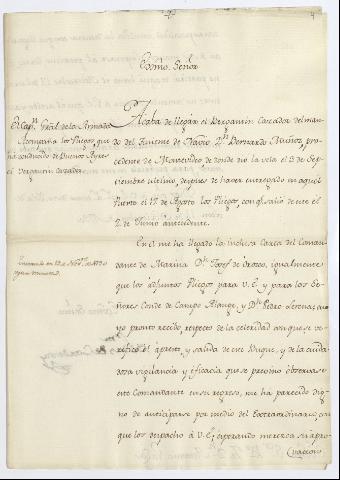 4
Exmo. Señor
El Capn. Gral. de la Armada
Acompaña los Pliegos, que
ha conducido de Buenos Ayres
el Bergantin Cazador.
Acaba de llegar el Bergantin Cazador del man-
do del Teniente de Navio Dn. Bernardo Muñoz, pro-
cedente de Montevideo de donde dio la vela el 3 de Sep-
tiembre ultimo, despues de haver entregado en aquel
Puerto el 17 de Agosto los Pliegos, con qe. salio de este el
2 de Junio antecedente.
En el me ha llegado la inclusa Carta del Coman-
dante de Marina Dn. Josef de Orozco, igualmente
que los adjuntos Pliegos para V.E. y para los Se-
ñores Conde de Campo Alange, y Dn. Pedro Lerena; cu-
yo pronto recibo, respecto de la celeridad con que se ve-
rificó el apresto, y salida de este Buque, y de la cuida-
dosa vigilancia y eficacia que se precomo observase
este Comandante en su regreso, me ha parecido dig-
no de anticiparse por medio del Extraordinario, con
que los despacho à V.E; esperando merezca su apro-
bacion